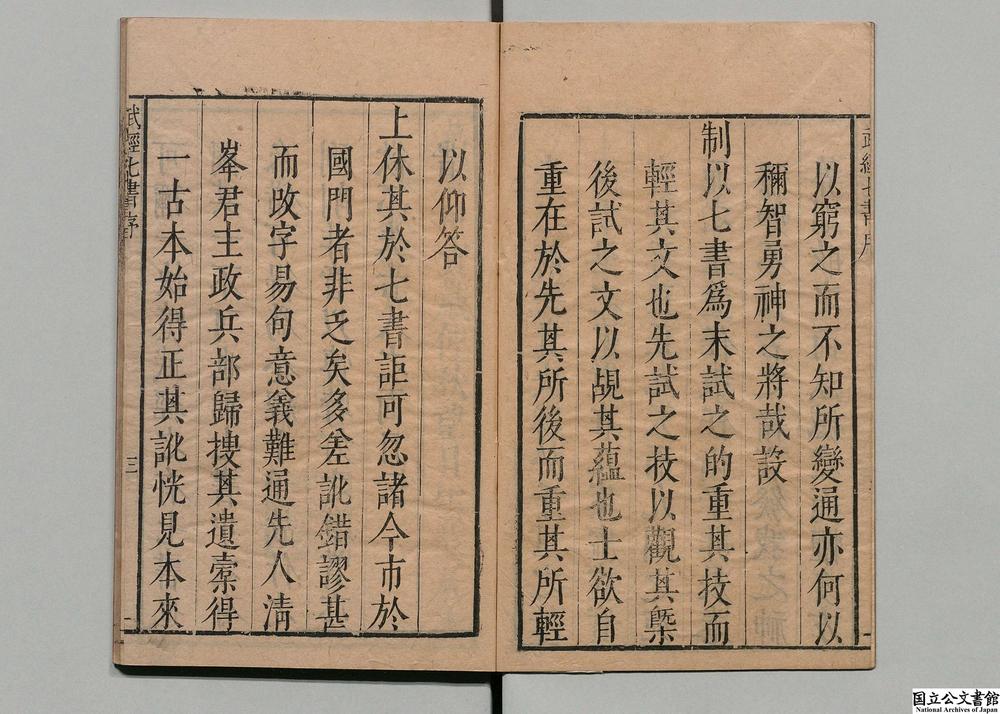 以窮之而不知所變通亦何以
稱智勇神之將哉設
制以七書爲末試之的重其技而
輕其文也先試之技以觀其槩
後試之文以覘其蘊也士欲自
重在於先其所後而重其所輕
以仰答
上休其於七書詎可忽諸今市於
國門者非乏矣多差訛錯謬甚
而改字易句意義難通先人淸
峯君主政兵部歸摉其遺稾得
一古本始得正其訛恍見本來
武經七書序
三
国立公文書館
National Archives of Japan